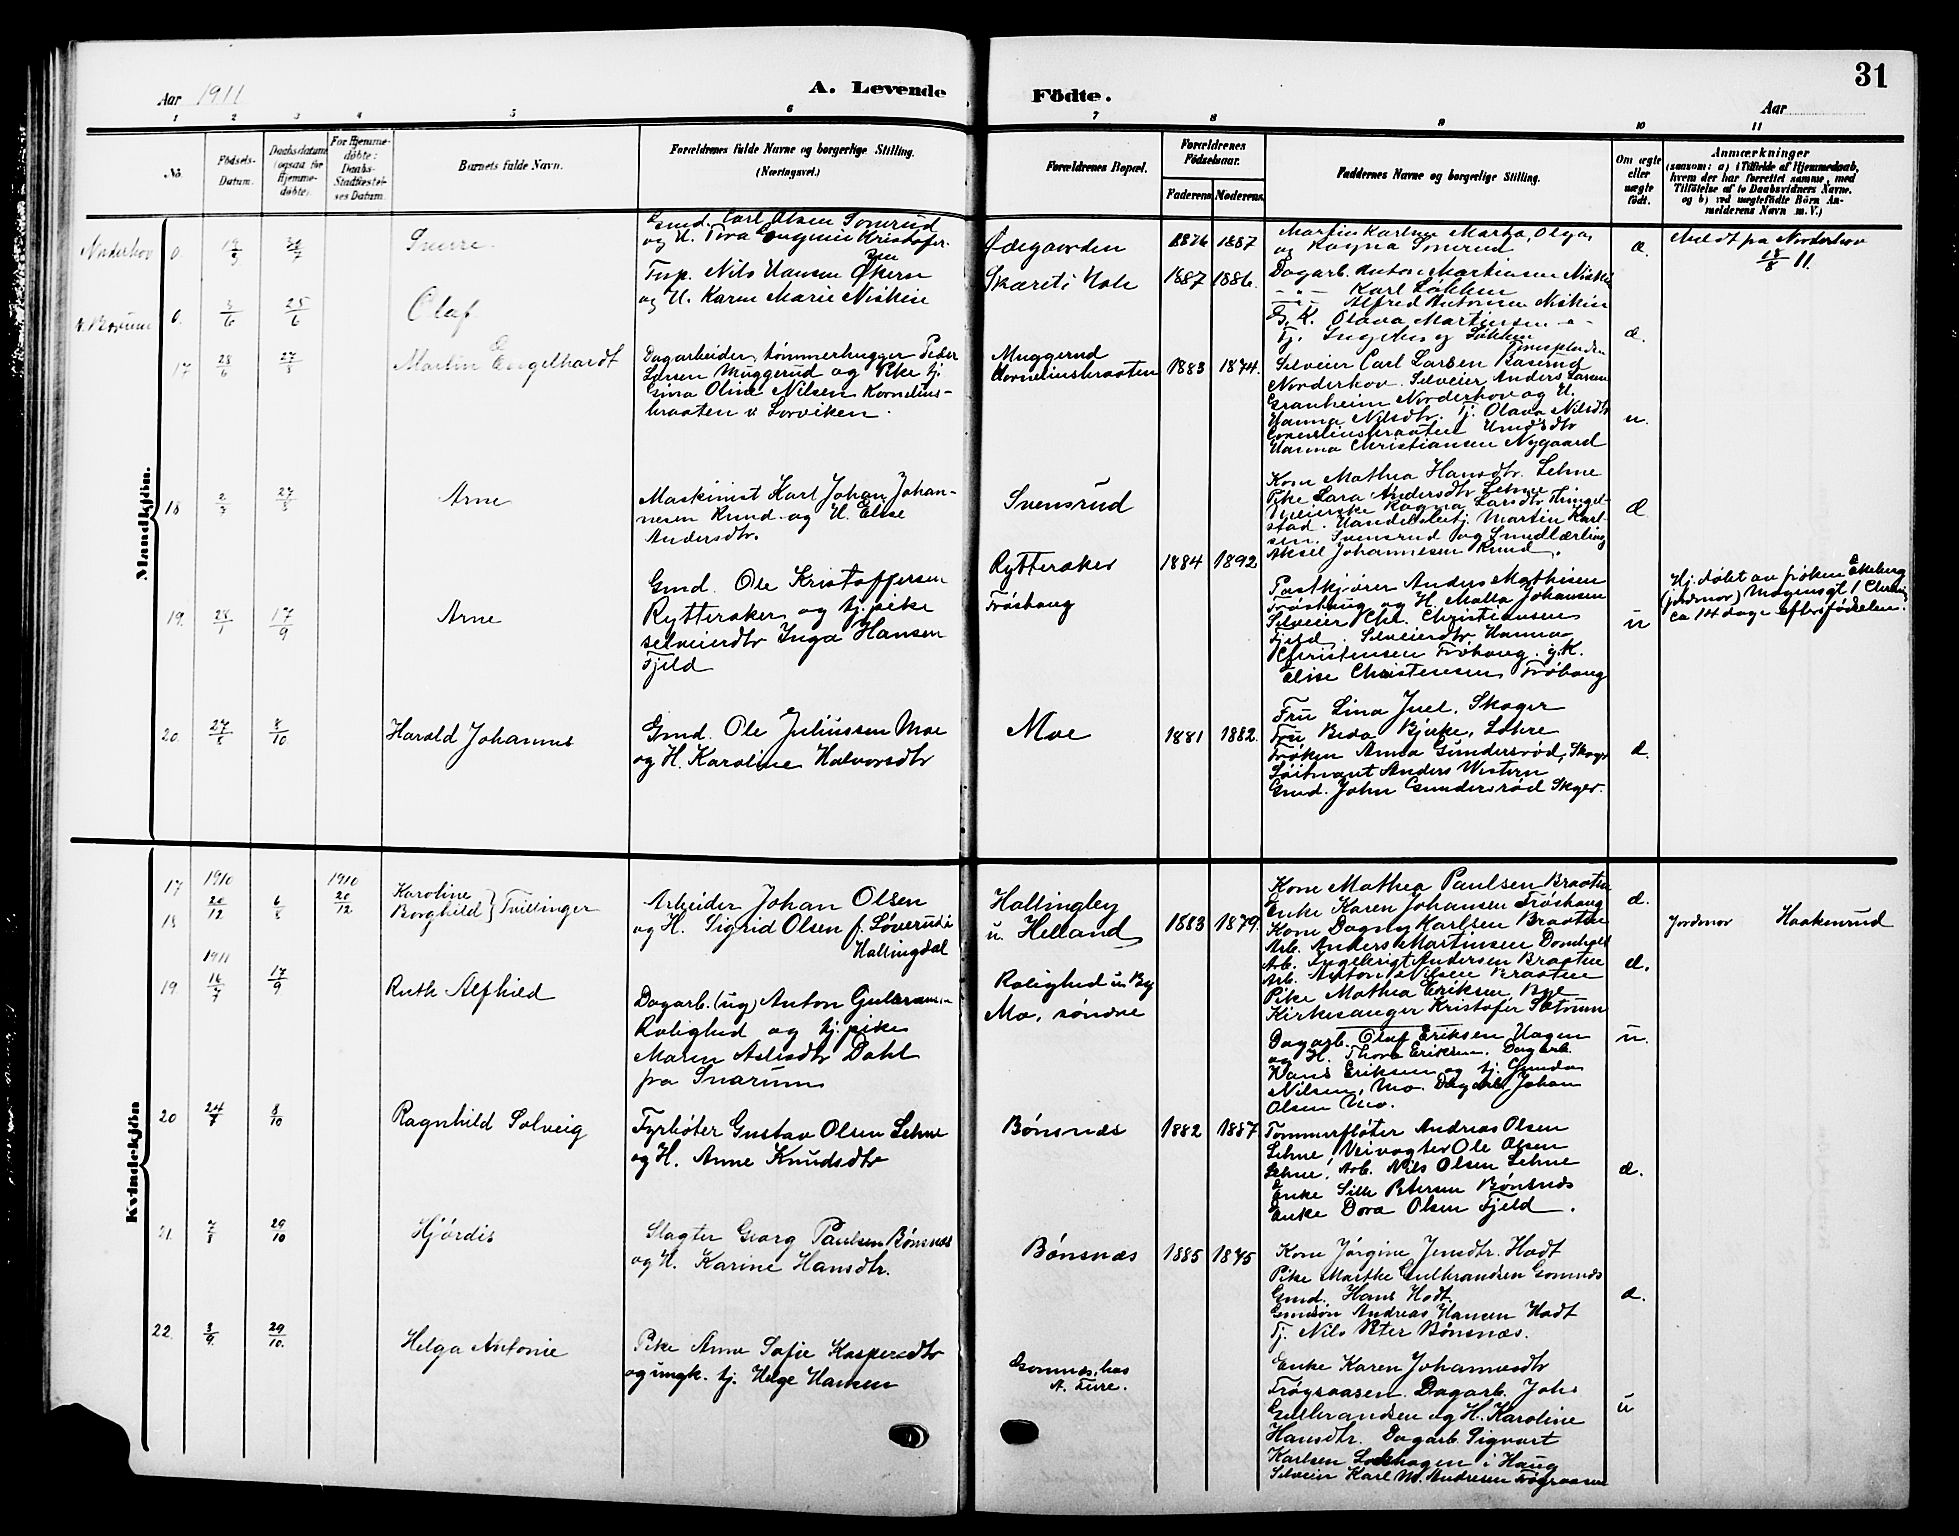 Aar 1911
A. Levende
Födte.
Aar
31
1 2 3 4 5 6 7 8 9 10 11
No.
Födsels-
Datum.
Daabsdatum
(ogsaa for
Hjemme-
döbte).
For Hjemme-
döbte:
Daabs-
Stadfæstel-
ses Datum.
Barnets fulde Navn.
Forældrenes fulde Navne og borgerlige Stilling.
(Næringsvei.)
Forældrenes Bopæl.
Forældrenes
Födselsaar.
Faderens Moderens
Faddernes Navne og borgerlige Stilling.
Om ægte
eller
uægte
födt.
Anmærkninger
(saasom: a) i Tilfælde af Hjemmedaab,
hvem der har forrettet samme, med
Tilföielse af to Daabsvidners Navne.
og b) ved uægtefödte Börn An-
melderens Navn m. V.)
Mandkjön.
Norderhov 0.
Gmd. Carl Olsen Somrud
Ødegaarden
1876 1887
Martin Karlsen
og Ragna Somrud
æ.
Meldt fra Norderhov
18/8 11.
0. 3/6 25/6 Olaf
og H. Karen Marie Niskin
Skaret i Hole
1887 1886.
Dagarb. Anton Martinsen
Karl Løkken
Alfred Antonsen Niskin
G. K. Olava Martinsen
æ.
17 28/6 27/8 Martin Engelhardt
Dagarbeider, tømmerhugger Peder
Larsen Muggerud og Pike tj.
Gina Oline Nilsen Kornelius-
braaten v Sorviken.
Muggerud
Korneliusbraaten
1883 1874.
Selveier Carl Larsen
Norderhov. Selveier Anders Larsen
Granheim Norderhov og H.
Hanna Nilsdtr. Tj. Olava Nilsdtr
Korneliusbraaten
Hanna Christiansen Nygaard
u.
18 2/7 27/8 Arne
Maskinist Karl Johan Johan-
nesen Rund og H. Elise
Andersdtr.
Svensrud
Kone Mathea Hansdtr. Lehne
Pike Lara Andersdtr Lehne
Meierske Ragna Larsdtr Hengel-
stad. Handelsbetj. Martin Karl-
sen. Svensrud og Smedlærling
Aksel Johannesen Rund.
æ
19. 17/9 Arne
Gmd. Ole Kristoffersen
Rytteraker og tj. pike
selveierdtr Inga Hansen
Fjeld
Rytteraker
Frøshaug
1884 1892
Postkjører Anders Mathisen
Frøshaug og H. Malla Johansen
Selveier Chr. Christiansen
Fjeld. Selveierdtr Hanna
Christensen Frøhaug. g.K.
Elise Christensen Frøhaug
u
Hj. døbt av frøken Ekeberg
(jordmor)
ca 14 dage efter fødselen.
20. 27/8 8/10 Harald Johannes
Gmd. Ole Juliussen Moe
og H. Karoline Halvorsdtr
Moe
1881 1882.
Fru Lina Juel, Skoger
Fru Beda Bjerke, Lehre
Frøken Anna Gundersrød, Skoger
Løitnant Anders Western
Gmd. John Gundersrød Skoger.
æ.
Kvindekjön
17
18
1910
20/12 6/8
1910
20/12
Karoline
Borghild } Tvillinger
Arbeider Johan Olsen
og H. Sigrid Olsen f. Løverud i
Hallingdal
Hallingby
u. Helland
1883 1879.
Kone Mathea Paulsen Braaten
Enke Karen Johansen Frøshaug
Kone Dagny Karlsen Braaten
Arb. Anders Martinsen
Arb. Ingebrigt Andersen Braaten
Arb. Anton Nilsen Braaten
Pike Mathea Eriksen Bye
Kirkesanger Kristofer Sætrum
æ.
æ.
Jordmor Haakenrud
1911
19. 16/7 17/9 Ruth Alfhild
Dagarb. (ug) Anton Gulbrans.
Rolighed og tj. pike
Maren Aslesdtr Dahl
fra Snarum
Rolighed u. By
Mo, søndre
Dagarb. Olaf Eriksen Hagen
og H. Thora Eriksen. Dagarb.
Hans Eriksen og tj. Gunda
Nilsen, Mo. Dagarb. Johan
Olsen Mo.
u.
20 24/7 8/10 Ragnhild Solveig
Fyrbøter Gustav Olsen Lehne
og H. Anne Knudsdtr
Bønsnæs
1882 1887
Tømmerfløter Andreas Olsen
Lehne, Veivogter Ole Olsen
Lehne, Arb. Nils Olsen Lehne
Enke Sille Petersen Bønsnæs
Enke Dora Olsen Fjeld.
æ.
21. 7/8 29/10 Hjørdis
Slagter Georg Paulsen Bønsnæs
og H. Karine Hansdtr.
Bønsnæs
1885 1875
Kone Jørgine Jensdtr. Hodt
Pike Marthe Gulbrandsen Gomnæs
Gmd. Hans Hodt.
Gmdsøn Andreas Hansen Hodt
Tj. Nils Peter Bønsnæs.
æ.
22. 3/9 29/10. Helga Antonie
Pike Anne Sofie Kaspersdtr
og ungk. tj. Helge Hansen
Gomnæs, hos
A. Ture.
Enke Karen Johannesdtr
Frøgsaasen. Dagarb. Johs
Gulbrandsen og H. Karoline
Hansdtr. Dagarb. Sigvart
Karlsen i Haug
Selveier Karl M. Andresen Frøgsaasen
u